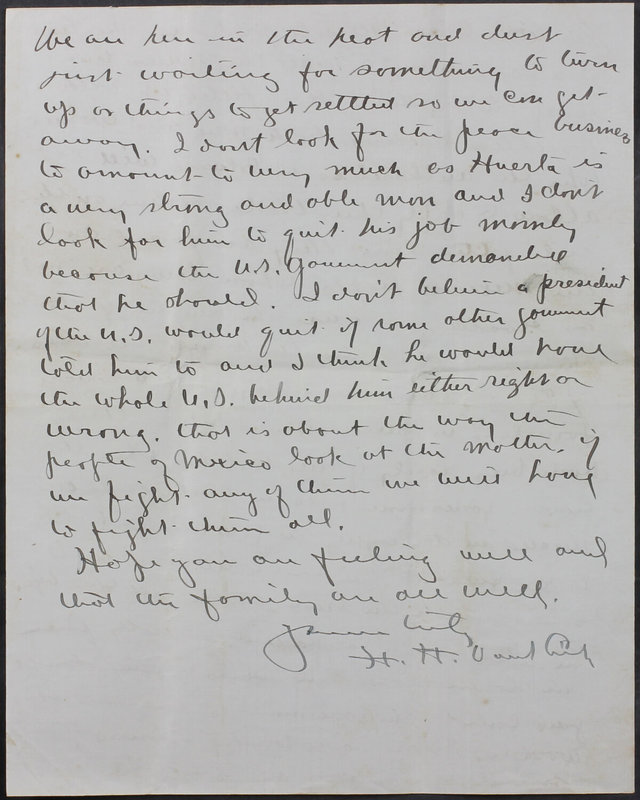 We are here in the heat and dust
just waiting for something to turn
up or things to get settled so we can get
away. I dont look for the peace business
to amount to very much as Huerta is
a very strong and able man and I don't
look for him to quit his job mainly
because the U.S. Government demanded
that he should. I don't believe a president
of the U.S. would quit if some other government
told him to and I think he would have
the whole U.S. behind him either right or
wrong. that is about the way the
people of Mexico look at the matter. if
we fight any of them we will have
to fight them all.
Hope you are feeling well and
that the family are all well.
H. H.